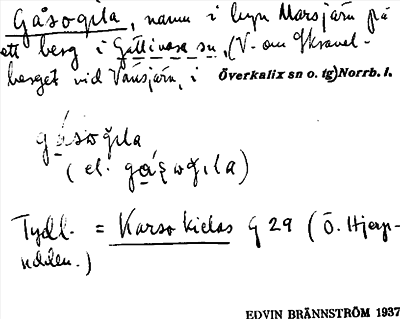 Gåsogila, namn i byn Marsjärn på
ett berg i Gällivare sn, (V. om Skravel-
berget vid Vänsjärn, i Överkalix sn o. tg) Norrb. l.
gásoǧıla
(el. gáşoǧıla)
Tydl. = Karso kielas G 29 (Ö. Hjerp-
EDVIN BRÄNNSTRÖM 1937